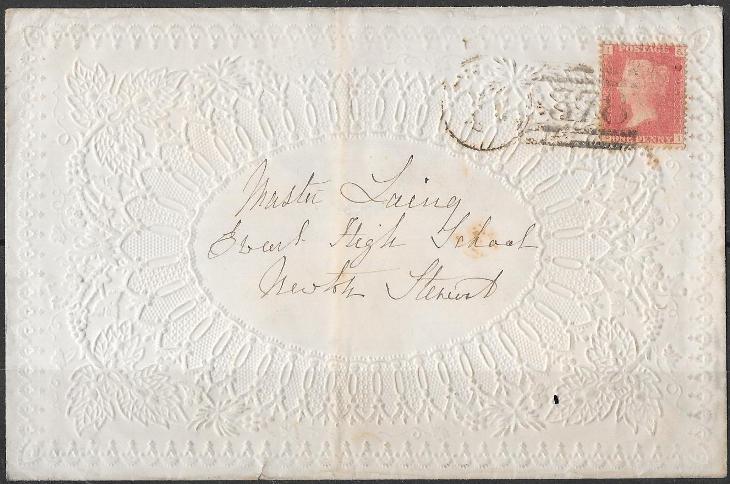 POSTAGE
ONE PENNY
Master Laing
Ewart High School
Newton Stewart